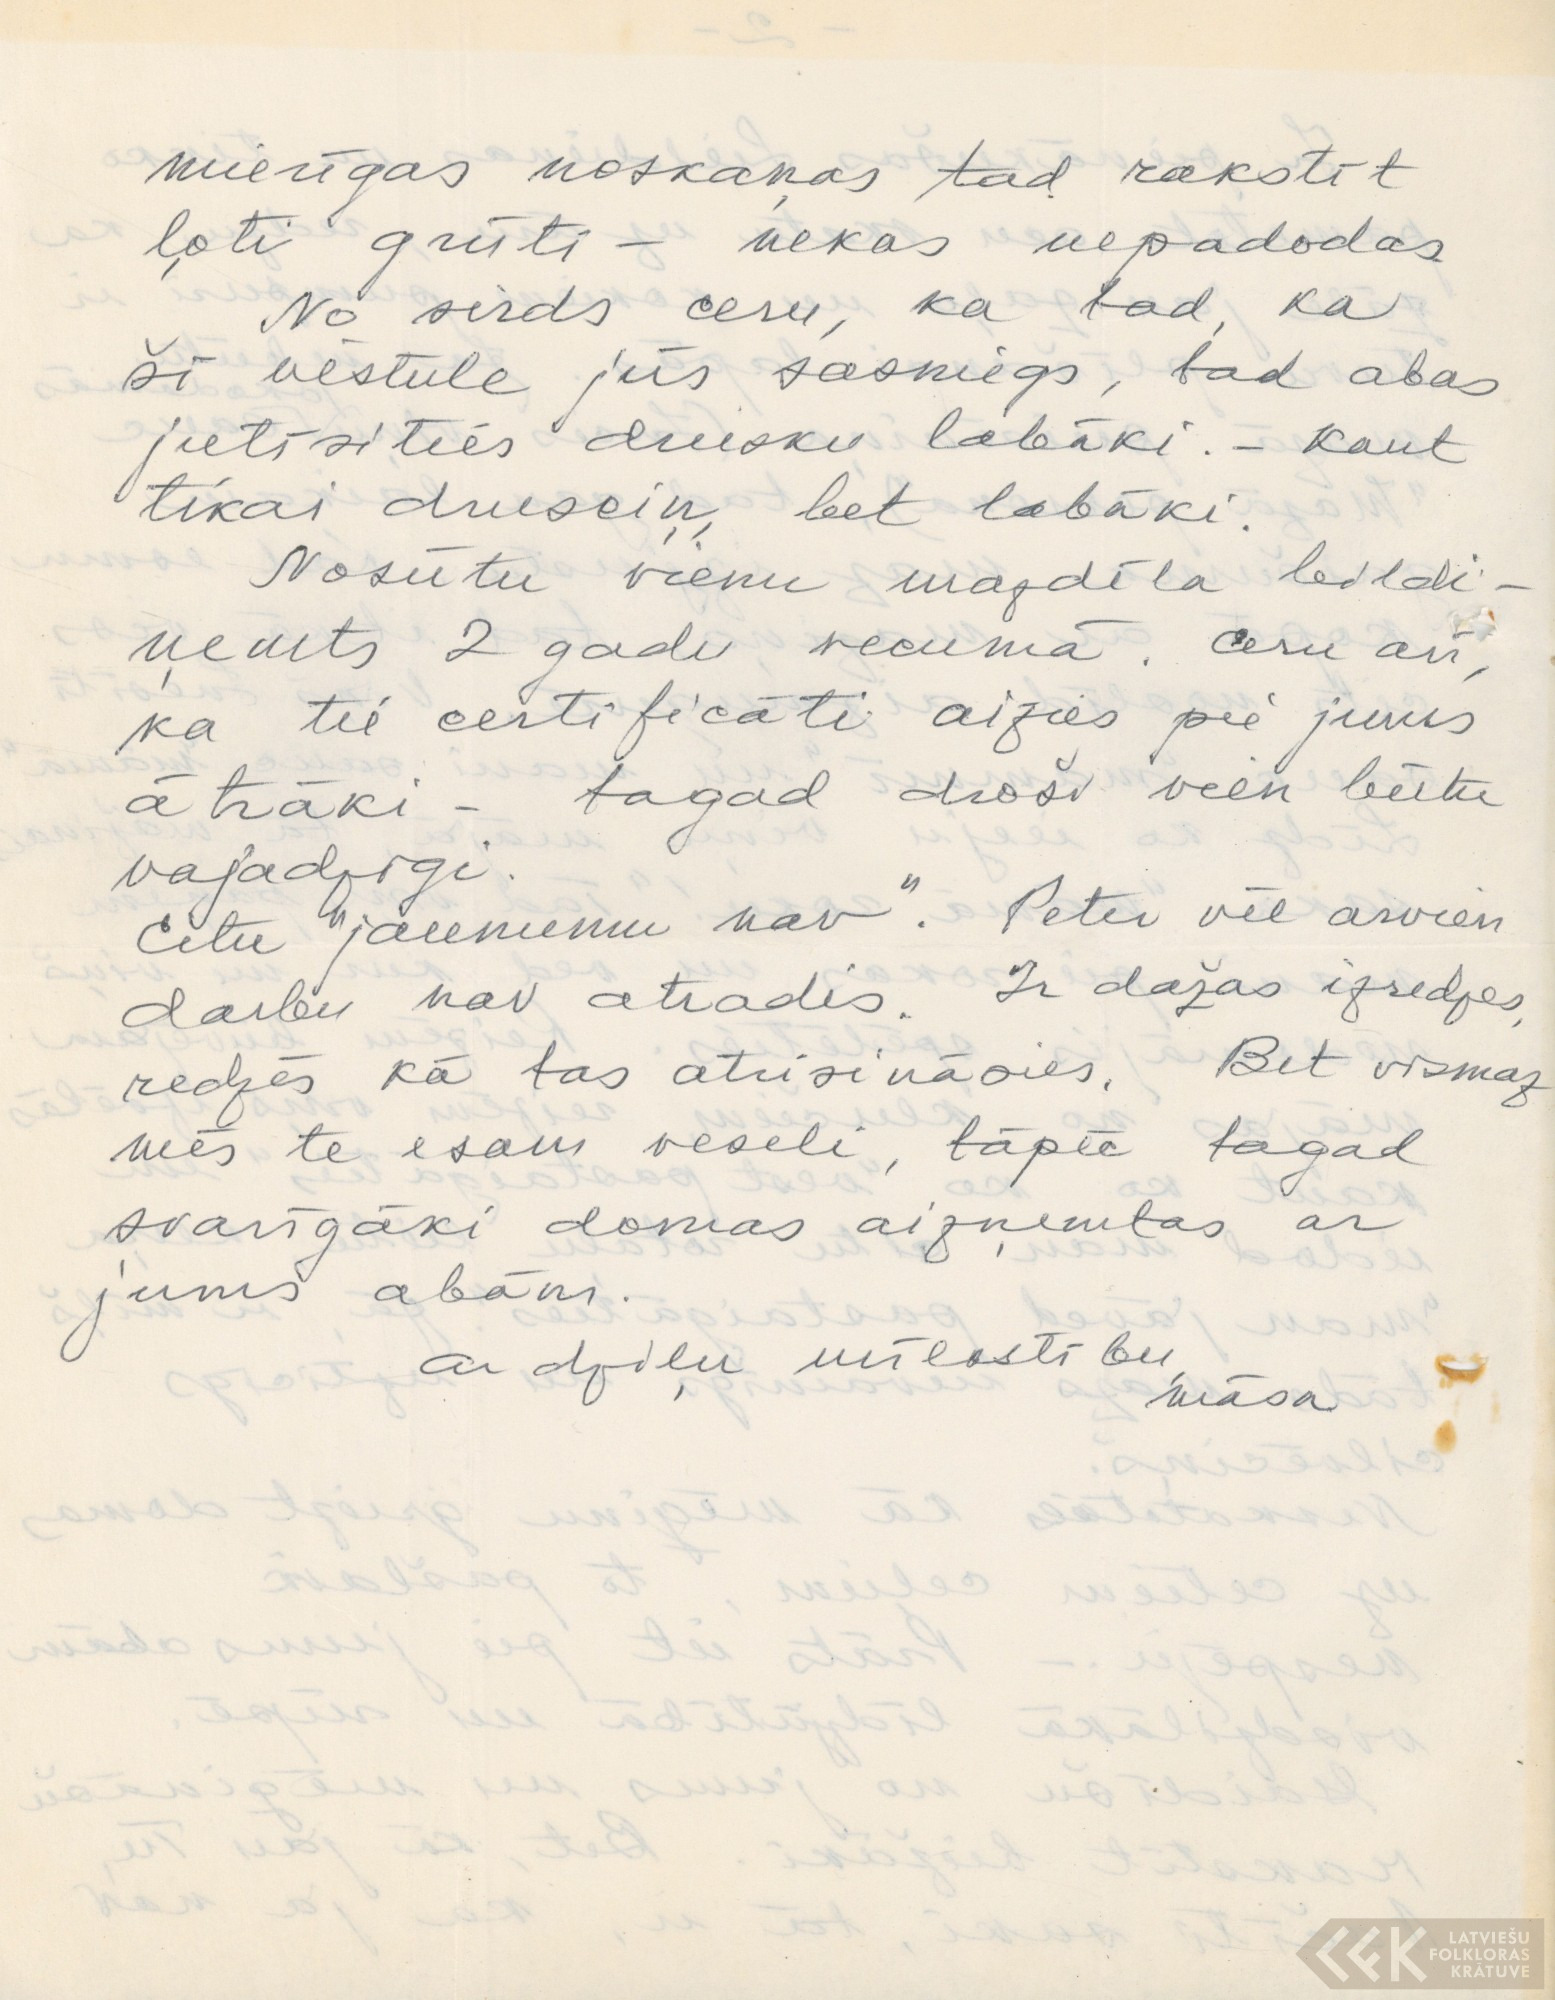 mierīgas noskaņas tad rakstīt
ļoti grūti – nekas nepadodas
No sirds ceru, ka tad, ka
šī vēstule jūs sasniegs, tad abas
jutīsities drusku labāki. – Kaut
tikai drusciņ, bet labāki.
Nosūtu vienu mazdēla bildi –
ņemts 2 gadu vecumā. Ceru arī,
ka tie certificāti aizies pie jums
ātrāki – tagad droši vien būtu
vajadzīgi.
Citu "jaunumu nav". Peter vēl arvien
darbu nav atradis. Ir dažas izredzes,
redzēs kā tas atrisināsies. Bet vismaz
mēs te esam veseli, tāpēc tagad
svarīgāki domas aizņemtas ar
jums abām.
ar dziļu mīlestību,
māsa
LATVIEŠU
FOLKLORAS
KRĀTUVE